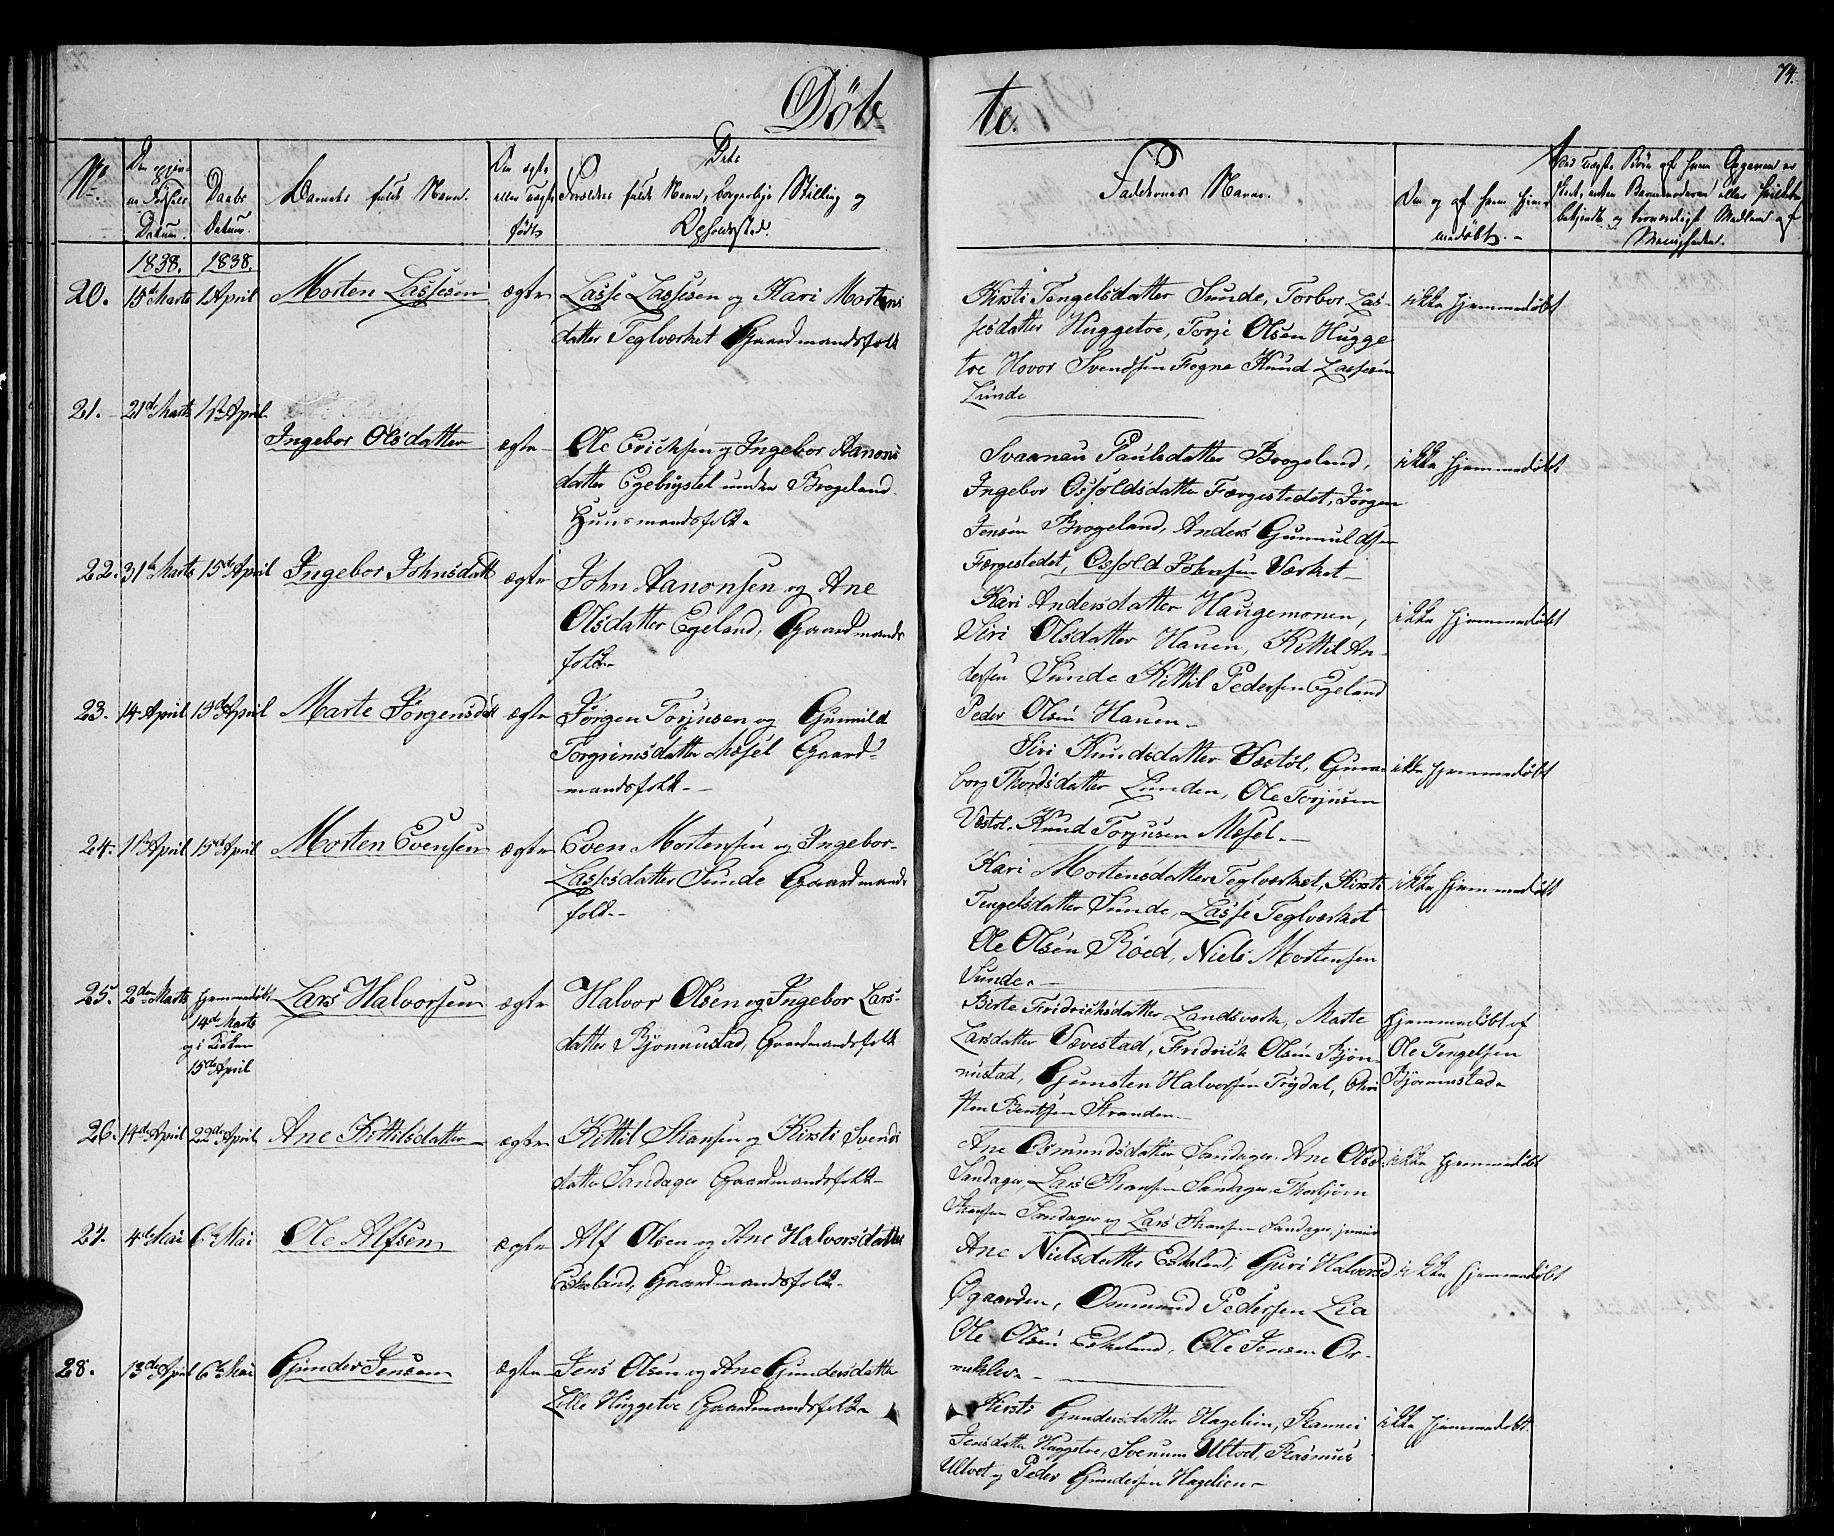 Döbte.
74.
No.
Den opgivne Fødsels Datum.
Daabs Datum.
Barnets fulde Navn.
Om ægte eller uægte født
Dets Forældres fulde Navn, borgerlige Stilling og Opholdssted.
Faddernes Navne.
Om og af hvem hjemmedøbt.
1838. 1838.
20. 15de Marts 1 April Morten Lassesen ægte
Lasse Lassesen og Kari Mortens
datter Teglværket Gaardmandsfolk
Kirsti Tengelsdatter Sunde, Torbor Las-
sesdatter Huggetve, Torje Olsen Hugge
tve Hovor Svendsen Fogne Knud Lassesen
Lunde
ikke hjemmedøbt
21. 21de Marts April
Ingebor Olsdatter ægte
Ole Erichsen og Ingebor Aanons
datter Egebystel under Brogeland
Huusmandsfolk
Svaanau Paulsdatter Brogeland,
Ingebor Osfoldsdatter Færgestedet, Jörgen
Jensen Brogeland, Anders Gunnuldsen
Færgestedet, Osfold Johnsen Værket
ikke hjemmedøbt
22. 31te Marts 15de April Ingebor Johnsdatt ægte
John Aanonsen og Ane
Olsdatter Egeland, Gaardmands
folk
Kari Andersdatter Haugemonen,
Siri Olsdatter Hauen, Kittil An-
dersen Sunde Kittil Pedersen Egeland
Peder Olsen Hauen
ikke hjemmedøbt
23. 14 April April Marte Jörgensdatt ægte
Jörgen Torjusen og Gunnild
Torgrimsdatter Mosel Gaard-
mandsfolk
Siri Knudsdatter Vestöl, Gun-
borg Thordsdatter Lunden, Ole Torjusen
Vestöl Knud Torjusen Mosel
ikke hjemmedøbt
24. April 15de April Morten Evensen ægte
Even Mortensen og Ingebor
Lassesdatter Sunde Gaardmands
folk
Kari Mortensdatter Teglværket, Kirsti
Tengelsdatter Sunde, Lasse Teglværket
Ole Olsen Röed, Niels Mortensen
Sunde
ikke hjemmedøbt
25. 2den Marts hjemmedøbt Lars Halvorsen ægte
14de Marts
og i Kirken
15de April
Halvor Olsen og Ingebor Lars-
datter Bjonnustad, Gaardmandsfolk
Birte Fridrichsdatter Landsverk, Marte
Larsdatter Vevestad, Fridrich Olsen Bjön-
nustad, Gunsten Halvorsen Trydal, Chri
sten Bentsen Stranden
hjemmedøbt af
Ole Tengelsen
Bjönnustad
26. 14de April 22de April Ane Kittilsdatter ægte
Kittil Hansen og Kirsti Svends
datter Sandager Gaardmandsfolk
Ane Osmundsdatter Sandager, Ane Olsd.
Sandager, Lars Hansen Sandager, Thorbjörn
Hansen Sandager og Lars Hansen Sandager junior
ikke hjemmedøbt
27. 4de Mai 6te Mai Ole Alfsen ægte
Alf Olsen og Ane Halvorsdatter
Eskeland, Gaardmandsfolk
Ane Nielsdatter Eskeland, Guri Halvorsd
Øgaarden, Osmund Pedersen Lia
Ole Olsen Eskeland, Ole Jensen Or-
mekleve
ikke hjemmedøbt
28. 13de April 6te Mai Gunder Jensen ægte
Jens Olsen og Ane Gundersdatter
Lille Huggetve Gaardmandsfolk
Kirsti Gundersdatter Hagelien,
Jensdatter Huggetve, Svenum Ulltvet, Rasmus
Ulltvet og Peder Gundersen Hagelien
ikke hjemmedøbt